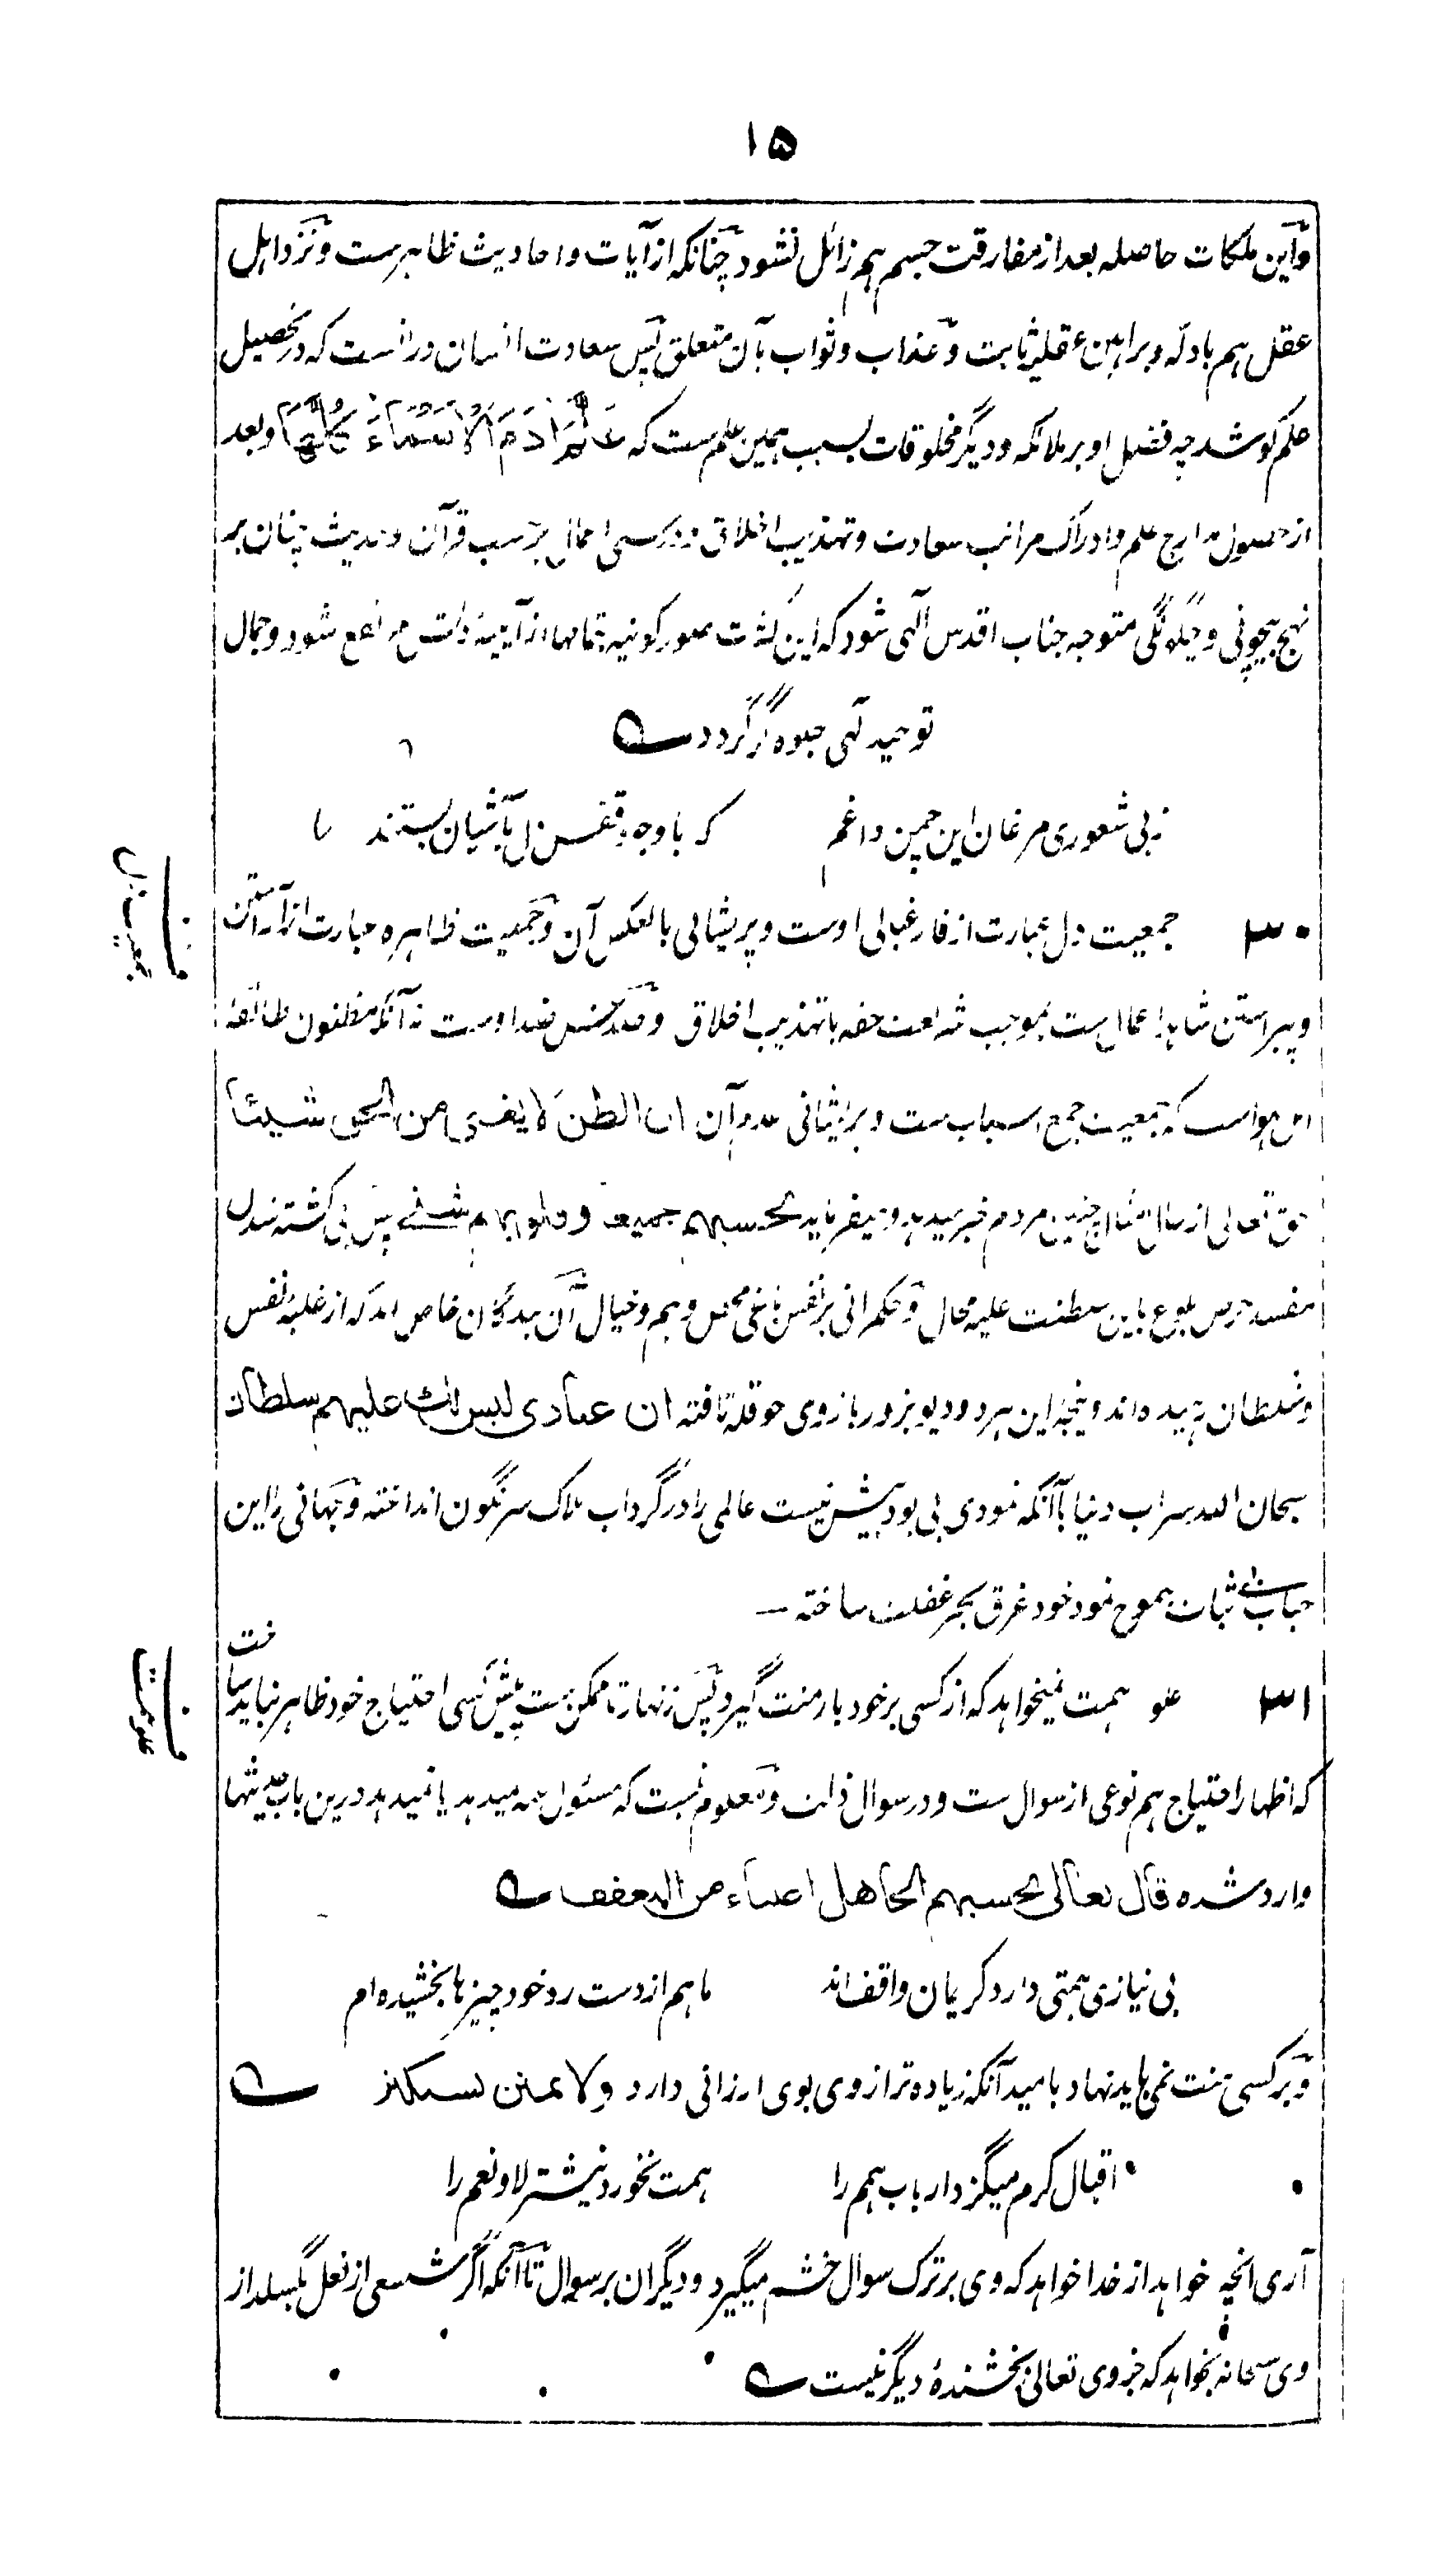 ۱۵
و این ملکات حاصله بعد از مفارقت جسم هم زائل نشود چنانکه از آیات و احادیث ظاهرست و نزد اهل
عقل هم بادلّه و براهین عقلیه ثابت و عذاب و ثواب بآن متعلق پس سعادت انسان درانست که در تحصیل
علم کوشد چه فضل او بر ملائکه و دیگر مخلوقات بسبب همین علم ست که عَلَّمَ اٰدَمَ الْاَسْمَاءَ كُلَّهَا و بعد
از حصول مدارج علم و ادراک مراتب سعادت و تهذیب اخلاق اعمال بر حسب قرآن و حدیث چنان بر
نهج بیچونی و چگونگی متوجه جناب اقدس آلهی شود که این کثرت صور کونیه بتمامها از آیینهٔ ذات مرتفع شود و جمال
توحید آلهی جلوه گر گردد
ز بی شعوری مرغان این چمن داغم که با وجود قفس دل بآشیان بستند
۳۰ جمعیت دل عبارت از فارغبالی اوست و پریشانی بالعکس آن و جمعیت ظاهره عبارت از آراستن
و پیراستن شاهد اعمال ست بموجب شریعت حقه با تهذیب اخلاق و عکسش ضد اوست نه آنکه مظنون طائفهٔ
اهل هواست که جمعیت جمع اسباب ست و پریشانی عدم آن ان الظن لا يغنى من الحق شيئا
حق تعالی از حال چنین مردم خبر میدهد و میفرماید تحسبهم جميعا و قلوبهم شتى پس بی کشته شدن
نفس بلوغ باین سلطنت علیه محال و حکمرانی بر نفس باغی محض وهم و خیال آن بندگان خاص اند که از غلبهٔ نفس
و شیطان رهیده اند و پنجهٔ این هر دو دیو بزور بازوی حوقله تافته ان عبادى ليس لك عليهم سلطان
سبحان الله سراب دنیا با آنکه نمودی بی بود بیش نیست عالمی را در گرداب هلاک سرنگون انداخته و جهانی را این
حباب بی ثبات بموج نمود خود غرق بحر غفلت ساخته
۳۱ علو همت نمیخواهد که از کسی بر خود بار منت گیرد پس زنهار تا ممکن ست پیش کسی احتیاج خود ظاهر نباید ساخت
که اظهار احتیاج هم نوعی از سوال ست و در سوال ذلت و معلوم نیست که مسئول عنه میدهد یا نمیدهد درین باب حدیثها
وارد شده قال تعالى يحسبهم الجاهل اغنياء من التعفف
بی نیازی همتی دارد کریمان واقف اند ما هم از دست رد خود چیزها بخشیده ام
و بر کسی منت نمی باید نهاد بامید آنکه زیاده تر از وی بوی ارزانی دارد ولا تمنن تستكثر
اقبال کرم میگزد ارباب همم را همت نخورد نیشتر لا و نعم را
آری انچه خواهد از خدا خواهد که وی بر ترک سوال خشم میگیرد و دیگران بر سوال تا آنکه اگر شسعی از نعل بگسلد از
وی سبحانه بخواهد که جز وی تعالی بخشندهٔ دیگر نیست
جمعیت دل
علو همت